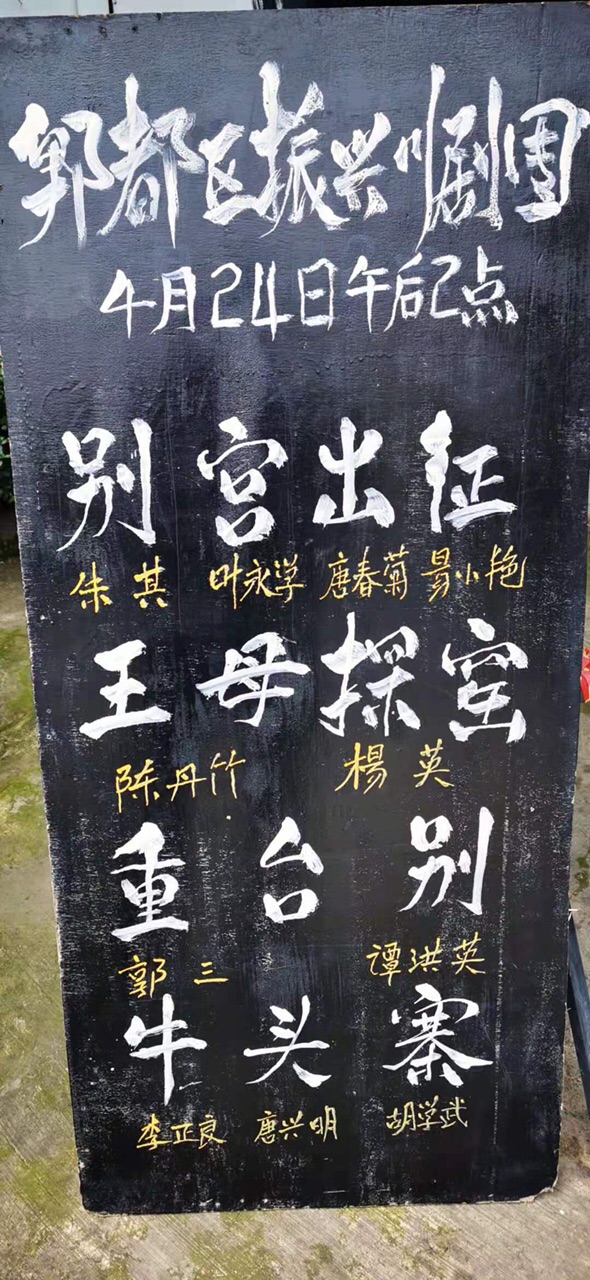 郫都区振兴川剧团
4月24日午后2点
别宫出征
朱其 叶永学 唐春菊 易小艳
王母探窑
陈丹竹 楊英
重台别
郭三 谭洪英
牛头寨
李正良 唐兴明 胡学武